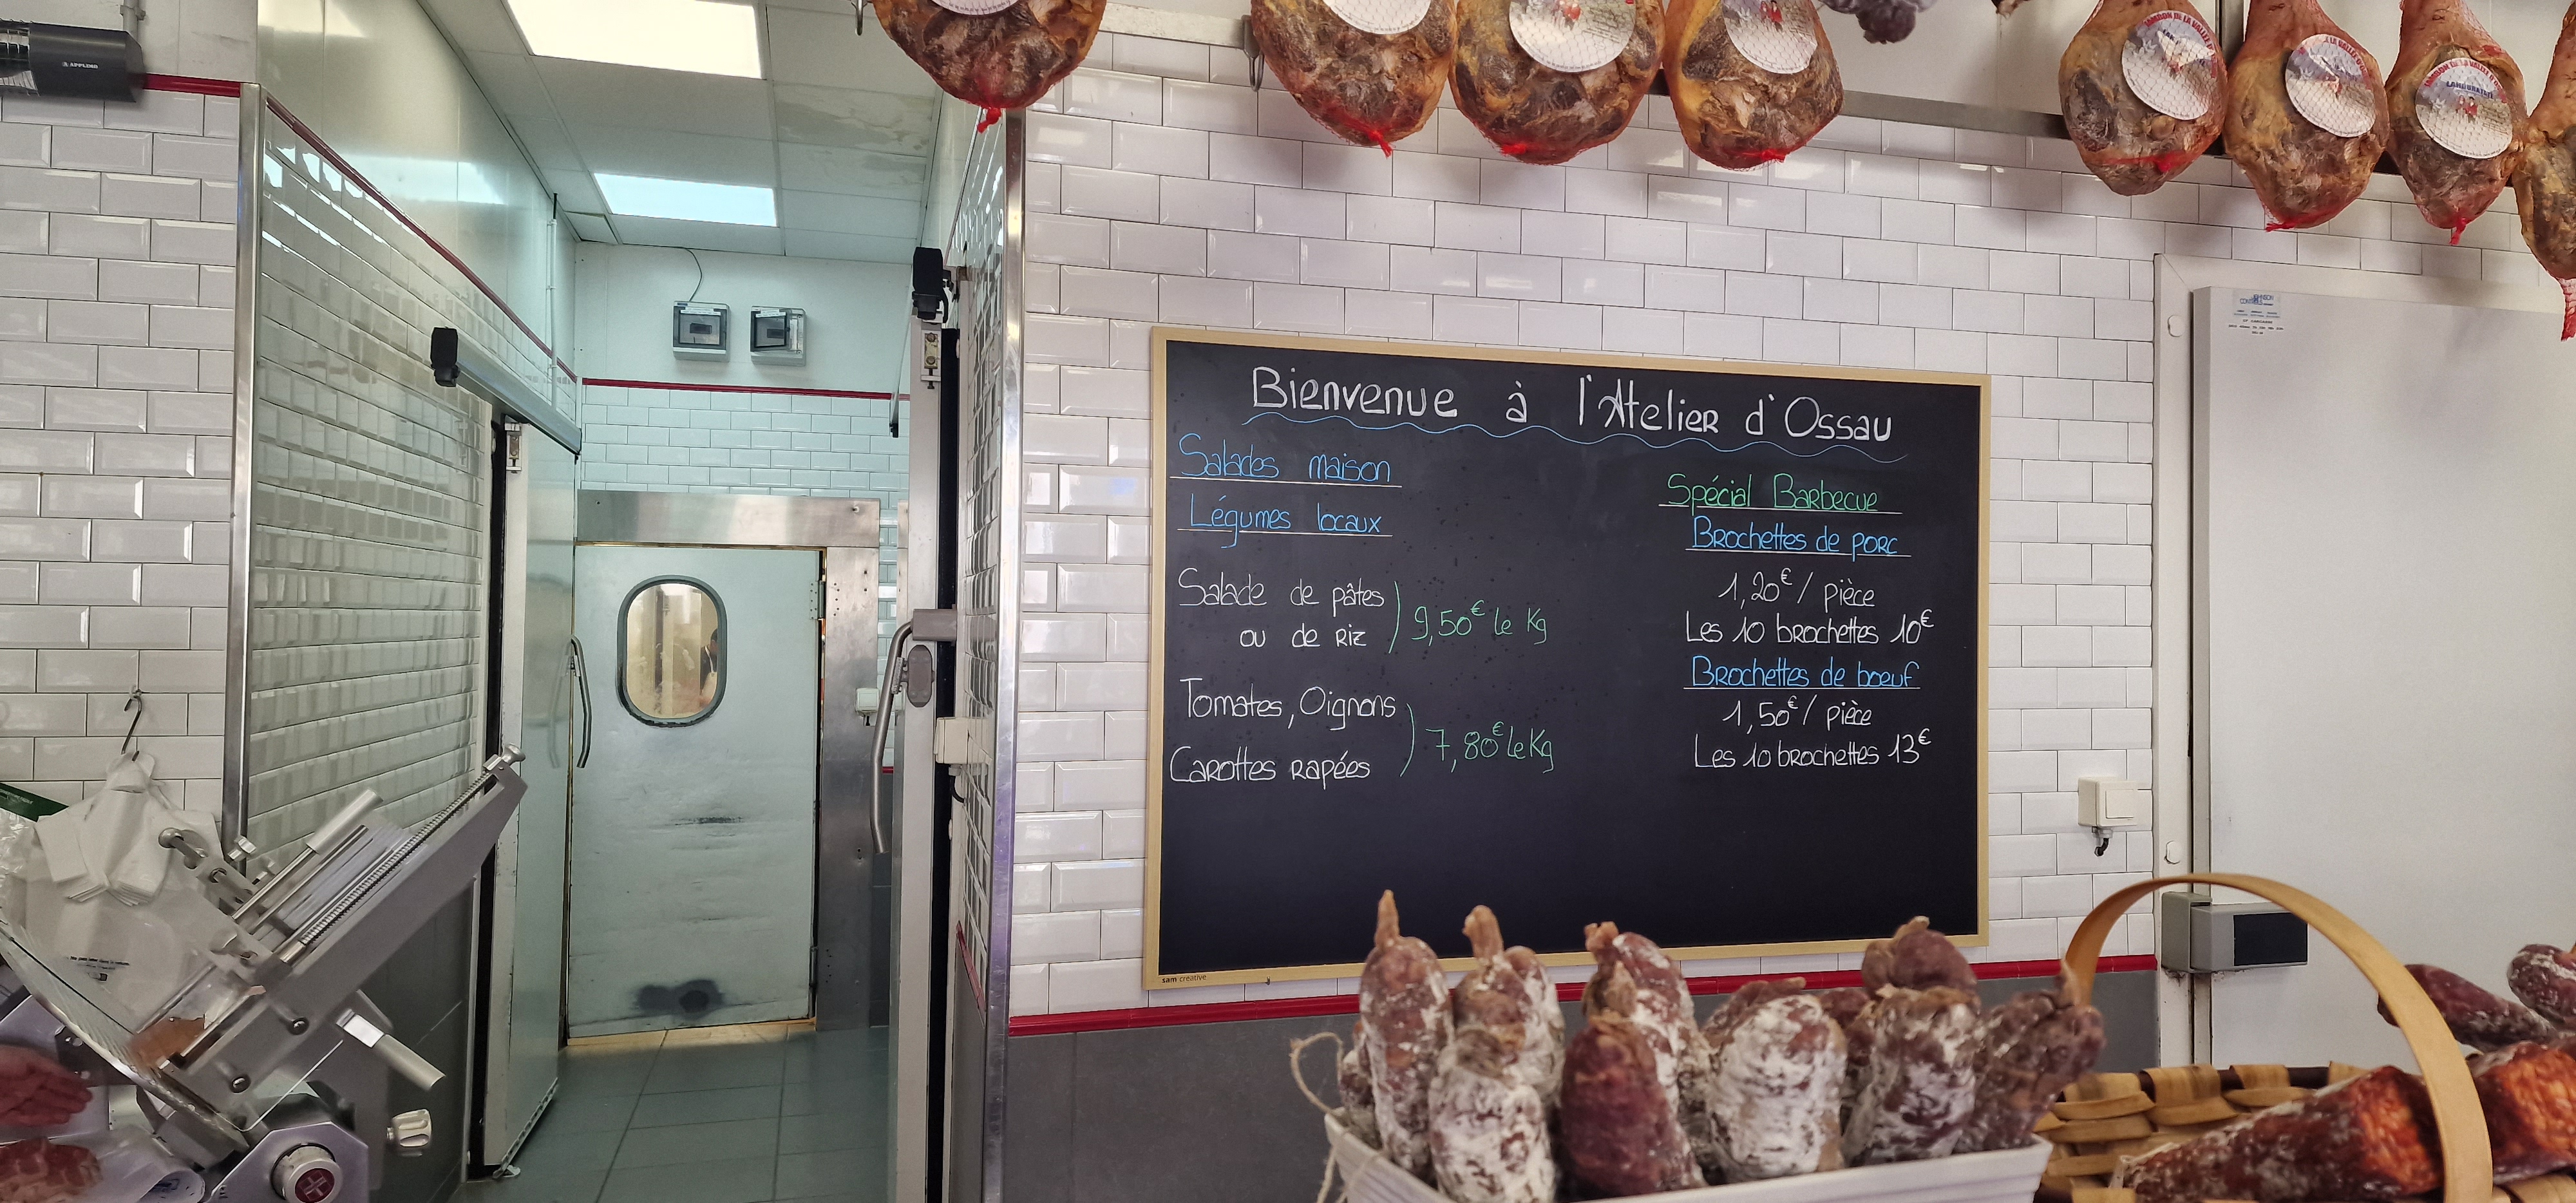 APPLIMO
Bienvenue à l'Atelier d'Ossau
Salades maison
Légumes locaux
Salade de pâtes
ou de Riz
9,50€ le Kg
Tomates, Oignons
Carottes rapées
7,80€ le Kg
Spécial Barbecue
Brochettes de porc
1,20€ / pièce
Les 10 brochettes 10€
Brochettes de boeuf
1,50€ / pièce
Les 10 brochettes 13€
sam creative
JAMBON DE LA VALLÉE